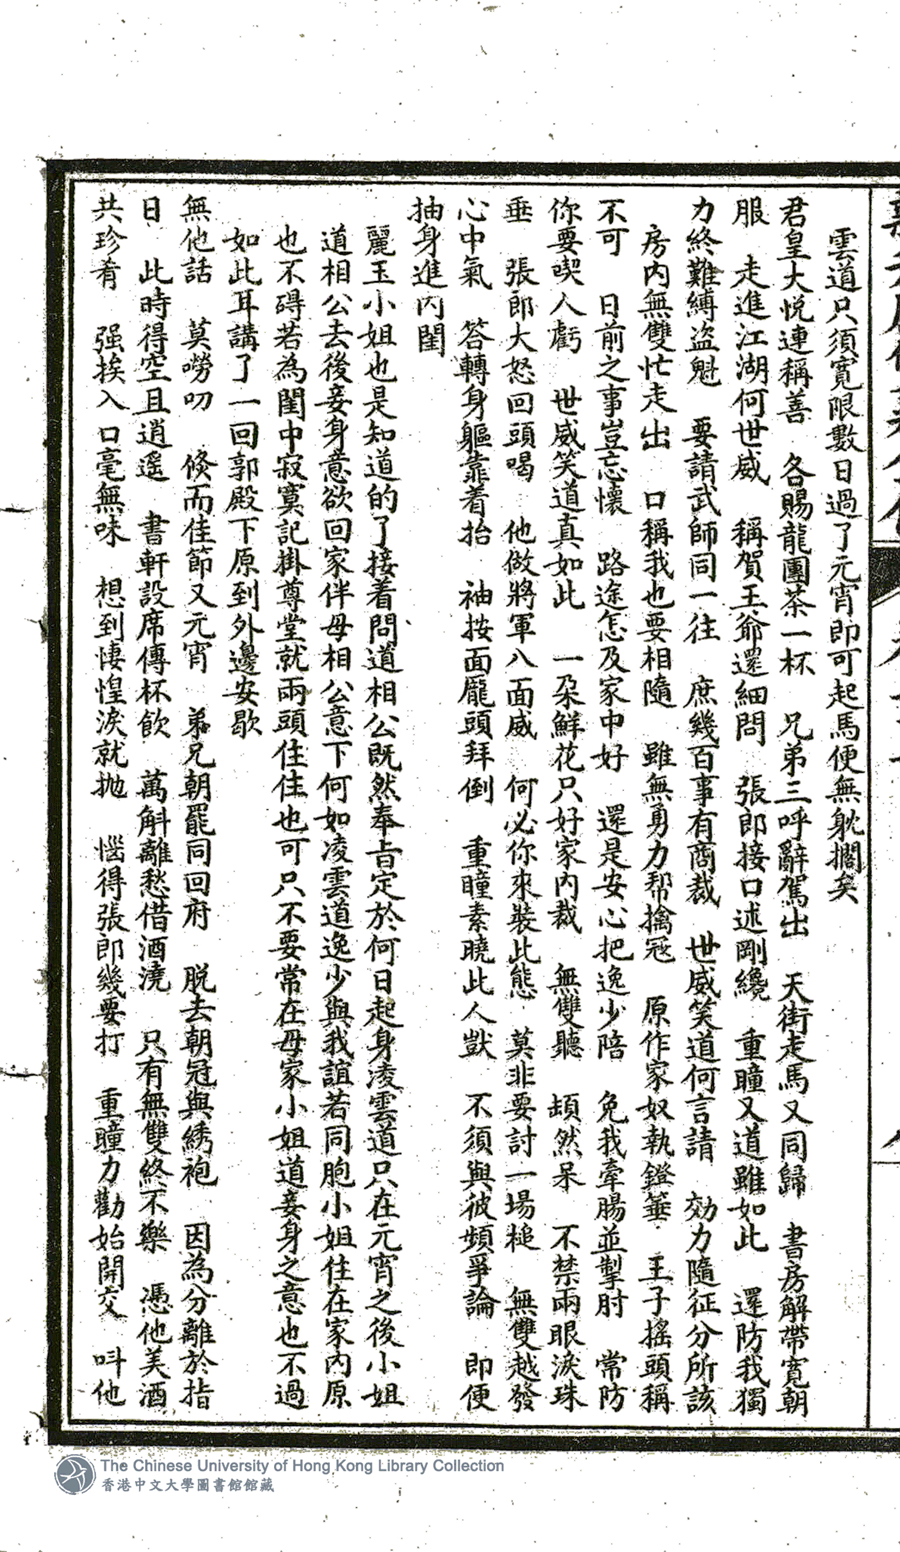 雲道只須寬限數日過了元宵即可起馬便無躭擱矣
君皇大悅連稱善　各賜龍團茶一杯　兄弟三呼辭駕出　天街走馬又同歸　書房解帶寬朝
服　走進江湖何世威　稱賀王爺還細問　張郎接口述剛纔　重瞳又道雖如此　還防我獨
力終難縛盜魁　要請武師同一往　庶幾百事有商裁　世威笑道何言請　効力隨征分所該
房內無雙忙走出　口稱我也要相隨　雖無勇力帮擒冦　原作家奴執鐙箠　王子搖頭稱
不可　日前之事豈忘懷　路途怎及家中好　還是安心把逸少陪　免我牽腸並掣肘　常防
你要喫人虧　世威笑道真如此　一朶鮮花只好家內裁　無雙聽　頓然呆　不禁兩眼淚珠
垂　張郎大怒回頭喝　他做將軍八面威　何必你來裝此態　莫非要討一場槌　無雙越發
心中氣　答轉身軀靠着抬　袖按面龐頭拜倒　重瞳素曉此人獃　不須與彼頻爭論　即便
抽身進內閨
麗玉小姐也是知道的了接着問道相公既然奉旨定於何日起身凌雲道只在元宵之後小姐
道相公去後妾身意欲回家伴母相公意下何如凌雲道逸少與我誼若同胞小姐住在家內原
也不碍若為閨中寂寞記掛尊堂就兩頭住住也可只不要常在母家小姐道妾身之意也不過
如此耳講了一回郭殿下原到外邊安歇
無他話　莫嘮叨　倐而佳節又元宵　弟兄朝罷同回府　脫去朝冠與綉袍　因為分離於指
日　此時得空且逍遙　書軒設席傳杯飲　萬斛離愁借酒澆　只有無雙終不樂　憑他美酒
共珍肴　强挨入口毫無味　想到悽惶淚就拋　惱得張郎幾要打　重瞳力勸始開交　呌他
The Chinese University of Hong Kong Library Collection
香港中文大學圖書館館藏